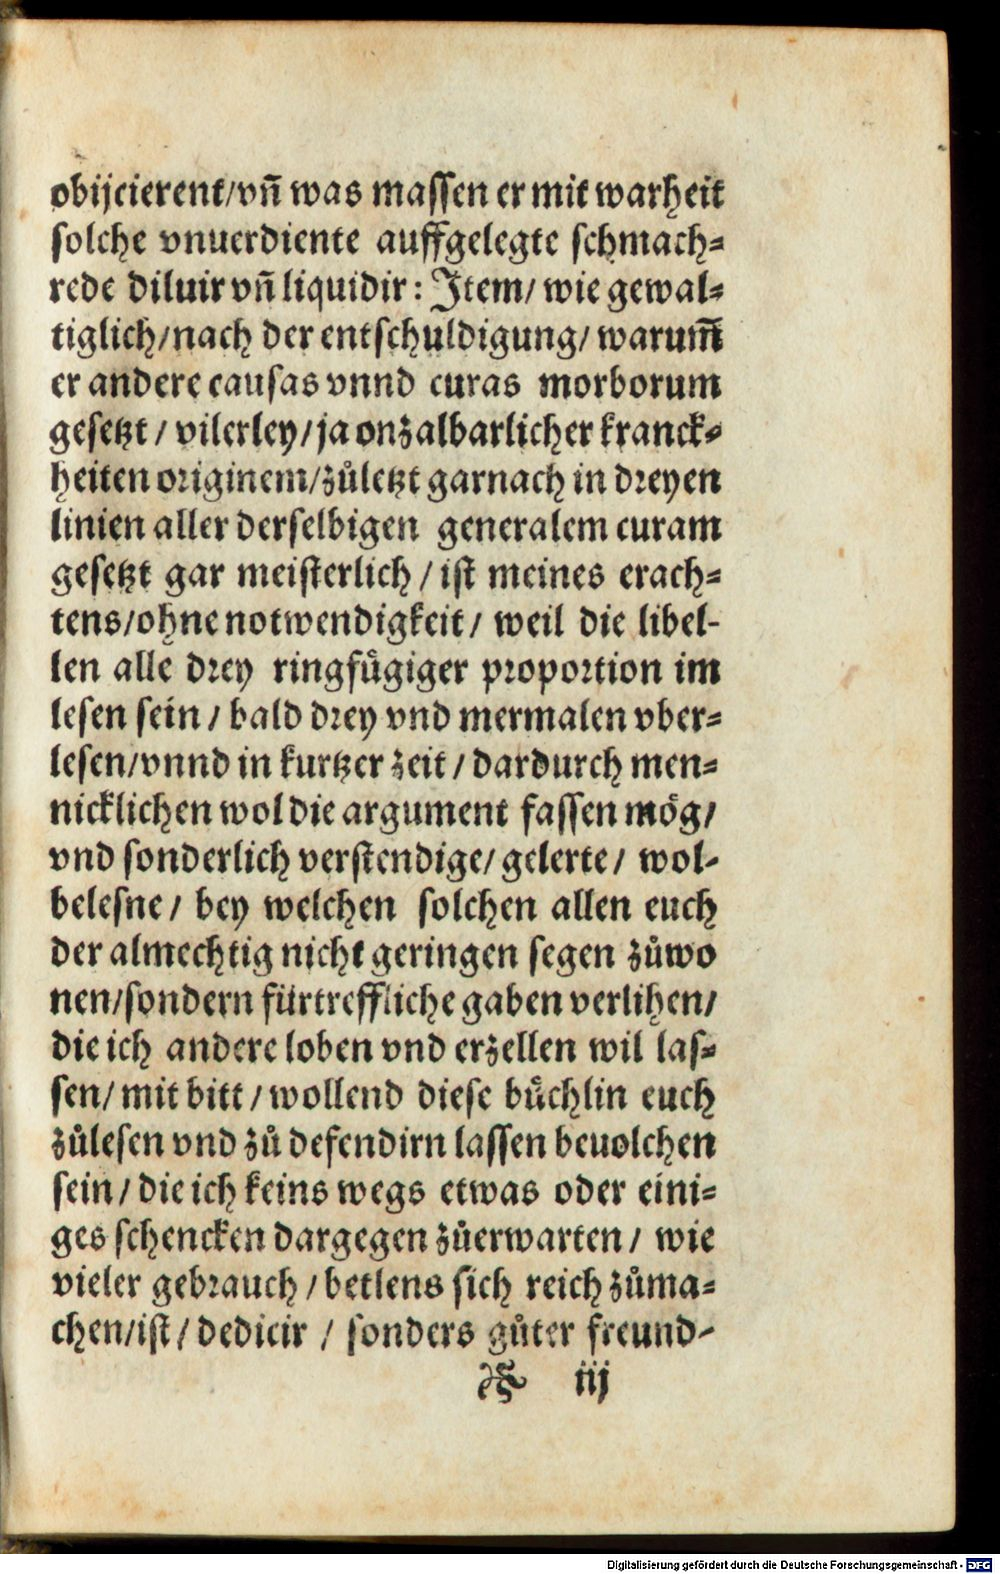 obijcierent/vñ was massen er mit warheit
solche vnuerdiente auffgelegte schmach⸗
rede diluir vñ liquidir: Item/ wie gewal⸗
tiglich/nach der entschuldigung/ warum̃
er andere causas vnnd curas morborum
gesetzt / vilerley/ja onzalbarlicher kranck⸗
heiten originem/zůletzt garnach in dreyen
linien aller derselbigen generalem curam
gesetzt gar meisterlich / ist meines erach⸗
tens/ohne notwendigkeit/ weil die libel-
len alle drey ringfůgiger proportion im
lesen sein / bald drey vnd mermalen vber⸗
lesen/vnnd in kurtzer zeit / dardurch men⸗
nicklichen wol die argument fassen mög/
vnd sonderlich verstendige/ gelerte/ wol-
belesne/ bey welchen solchen allen euch
der almechtig nicht geringen segen zůwo
nen/sondern fürtreffliche gaben verlihen/
die ich andere loben vnd erzellen wil las⸗
sen/ mit bitt / wollend diese bůchlin euch
zůlesen vnd zů defendirn lassen beuolchen
sein / die ich keins wegs etwas oder eini⸗
ges schencken dargegen zůerwarten/ wie
vieler gebrauch / betlens sich reich zůma⸗
chen/ist / dedicir / sonders gůter freund-
iij
Digitalisierung gefördert durch die Deutsche Forschungsgemeinschaft - DFG